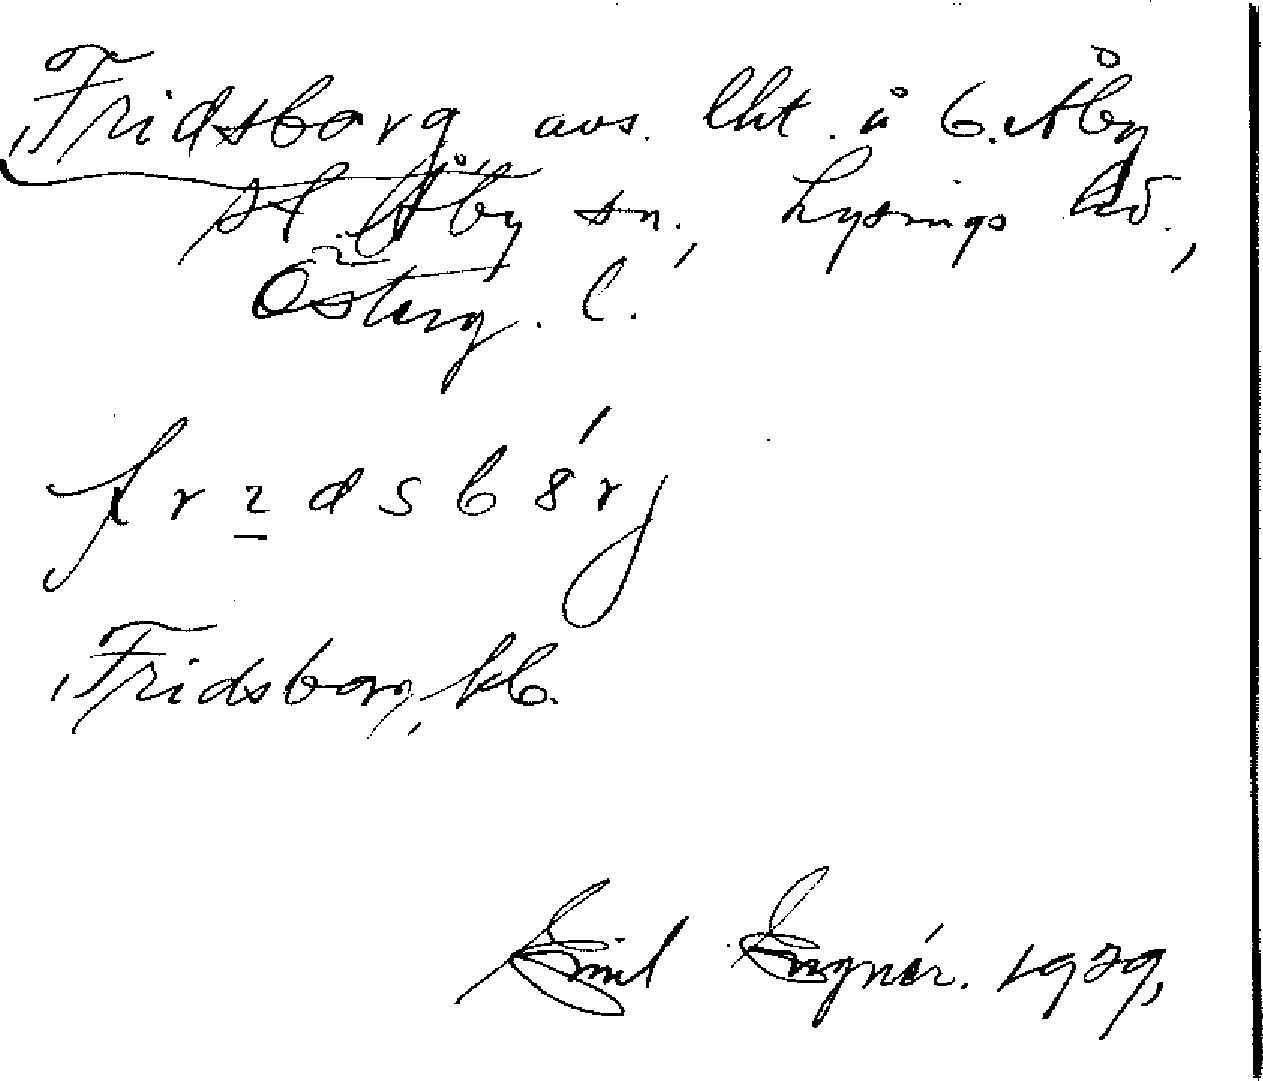 Fridsborg avs. lht. å b. Åby
St. Åby sn., Lysings hd.,
Österg. l.
frɩdsbórj
Fridsborg, kb.
Emil Engnér. 1929,